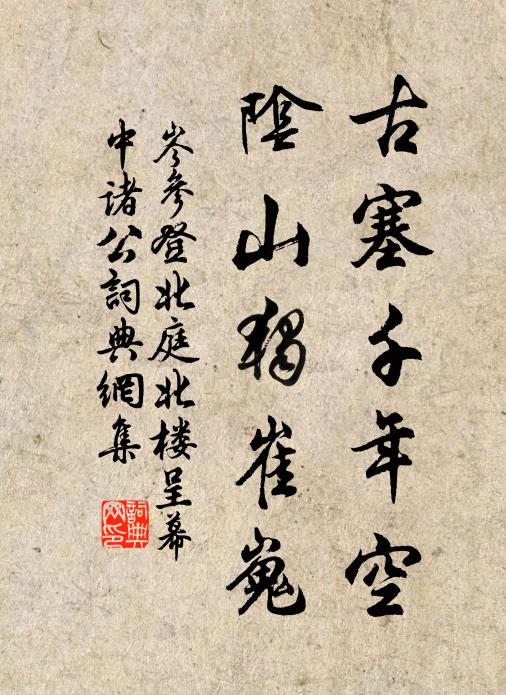 古塞千年空
陰山獨崔嵬
岑參登北庭北楼呈幕
中諸公詞典網集
詞典網印